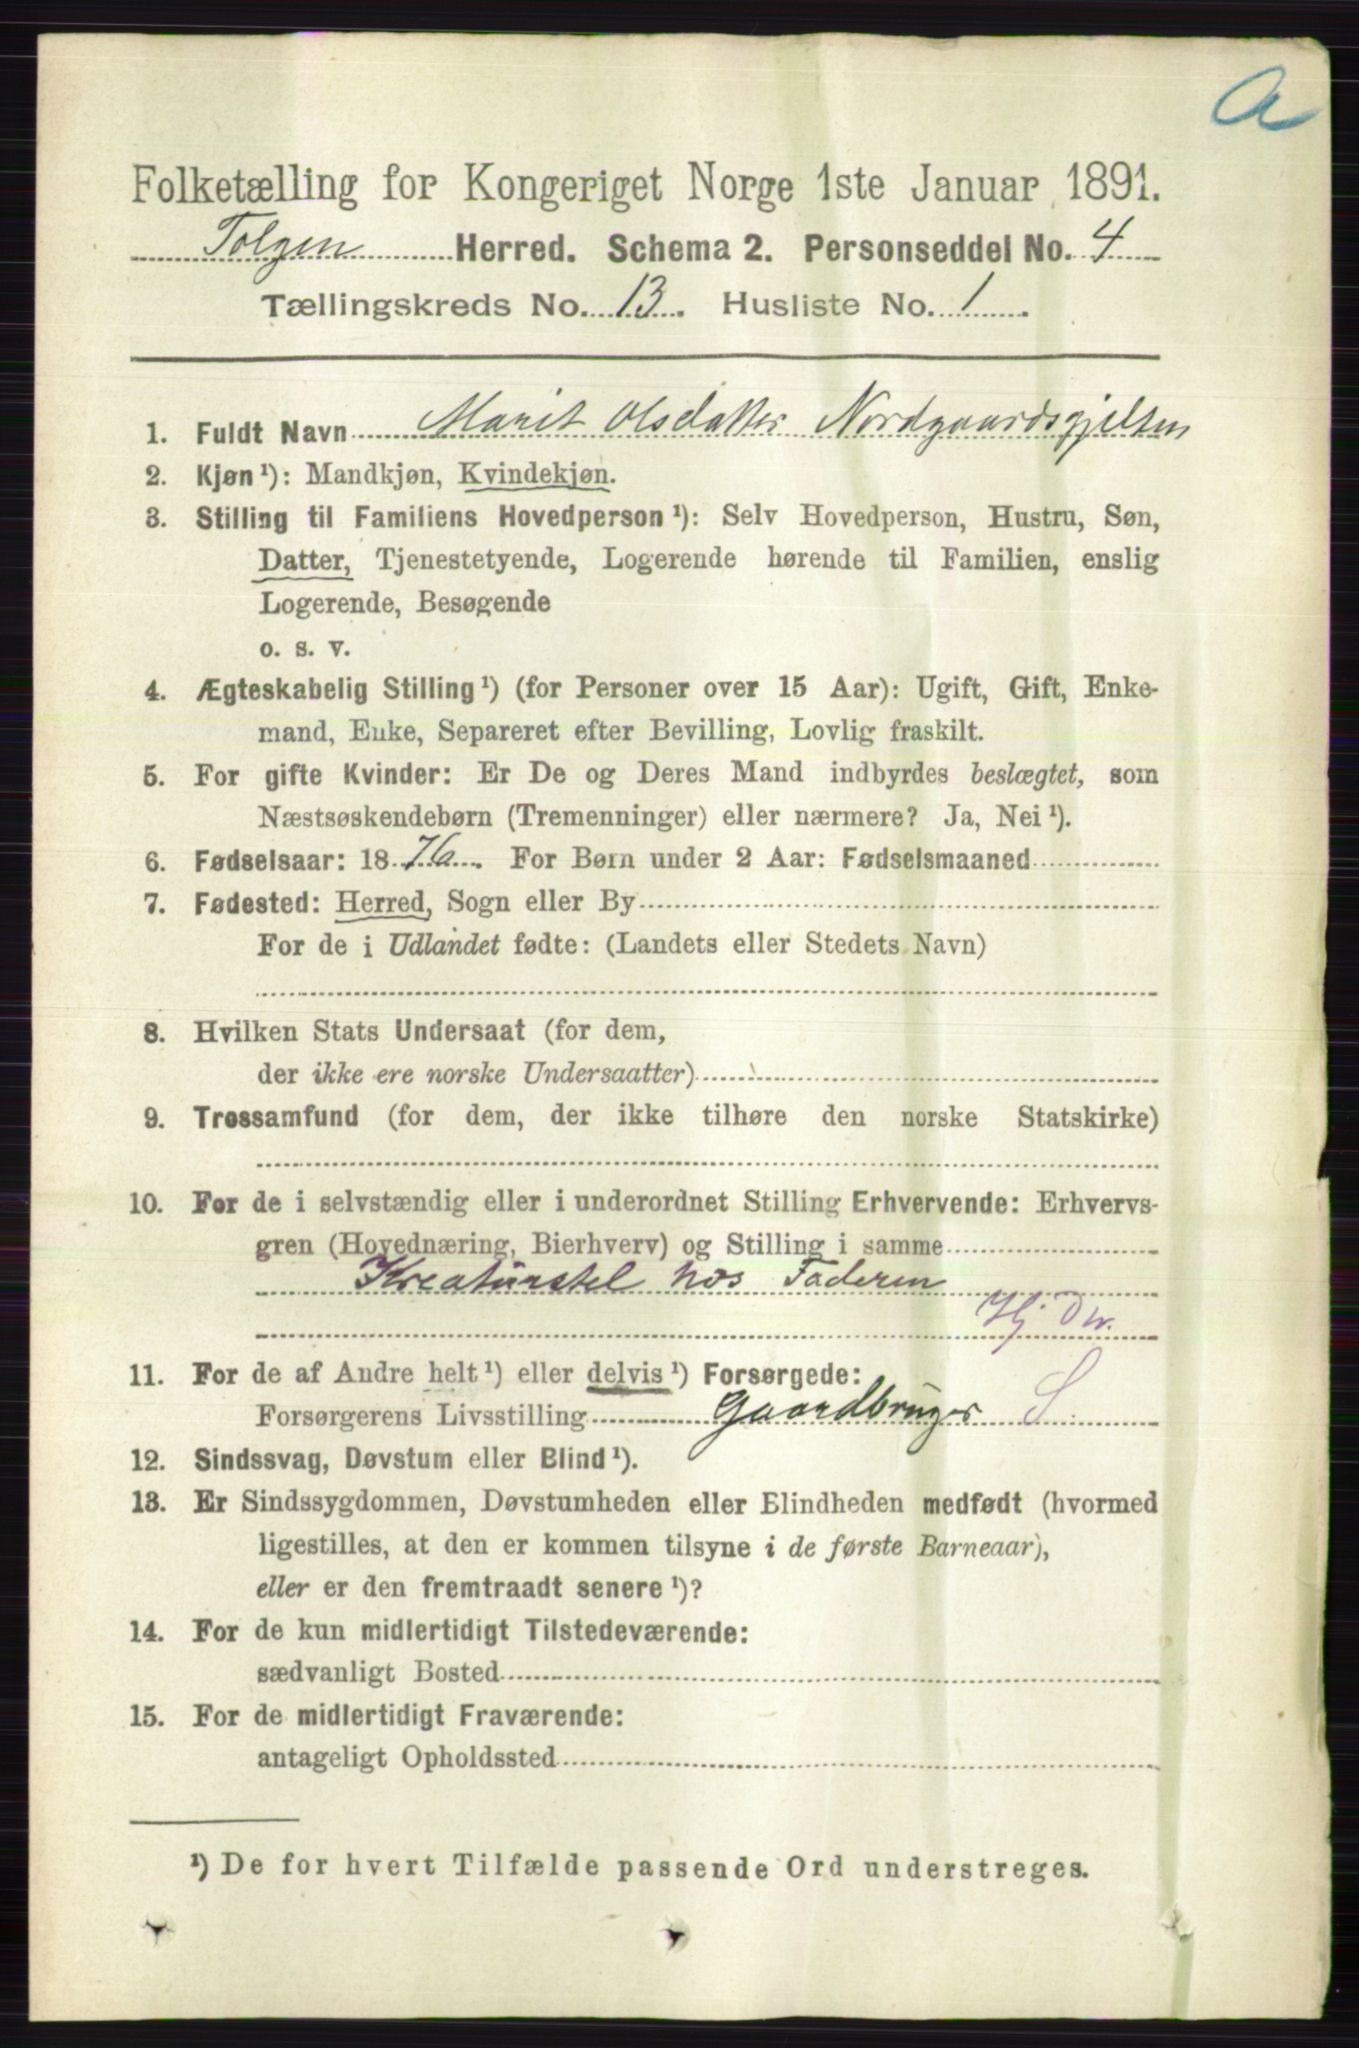 a
Folketælling for Kongeriget Norge 1ste Januar 1891.
Tolgen Herred. Schema 2. Personseddel No. 4
Tællingskreds No. 13. Husliste No. 1
1. Fuldt Navn Marit Olsdatter Nordgaardsgjelten
2. Kjøn ¹): Mandkjøn, Kvindekjøn.
3. Stilling til Familiens Hovedperson ¹): Selv Hovedperson, Hustru, Søn,
Datter, Tjenestetyende, Logerende hørende til Familien, enslig
Logerende, Besøgende
o. s. v.
4. Ægteskabelig Stilling ¹) (for Personer over 15 Aar): Ugift, Gift, Enke-
mand, Enke, Separeret efter Bevilling, Lovlig fraskilt.
5. For gifte Kvinder: Er De og Deres Mand indbyrdes beslægtet, som
Næstsøskendebørn (Tremenninger) eller nærmere? Ja, Nei ¹).
6. Fødselsaar: 1876. For Børn under 2 Aar: Fødselsmaaned
7. Fødested: Herred, Sogn eller By
For de i Udlandet fødte: (Landets eller Stedets Navn)
8. Hvilken Stats Undersaat (for dem,
der ikke ere norske Undersaatter)
9. Trossamfund (for dem, der ikke tilhøre den norske Statskirke)
10. For de i selvstændig eller i underordnet Stilling Erhvervende: Erhvervs-
gren (Hovednæring, Bierhverv) og Stilling i samme
Kreaturstel hos Faderen
Hj
11. For de af Andre helt ¹) eller delvis ¹) Forsørgede:
Forsørgerens Livsstilling Gaardbruger S
12. Sindssvag, Døvstum eller Blind ¹).
13. Er Sindssygdommen, Døvstumheden eller Blindheden medfødt (hvormed
ligestilles, at den er kommen tilsyne i de første Barneaar),
eller er den fremtraadt senere ¹)?
14. For de kun midlertidigt Tilstedeværende:
sædvanligt Bosted
15. For de midlertidigt Fraværende:
antageligt Opholdssted
¹) De for hvert Tilfælde passende Ord understreges.